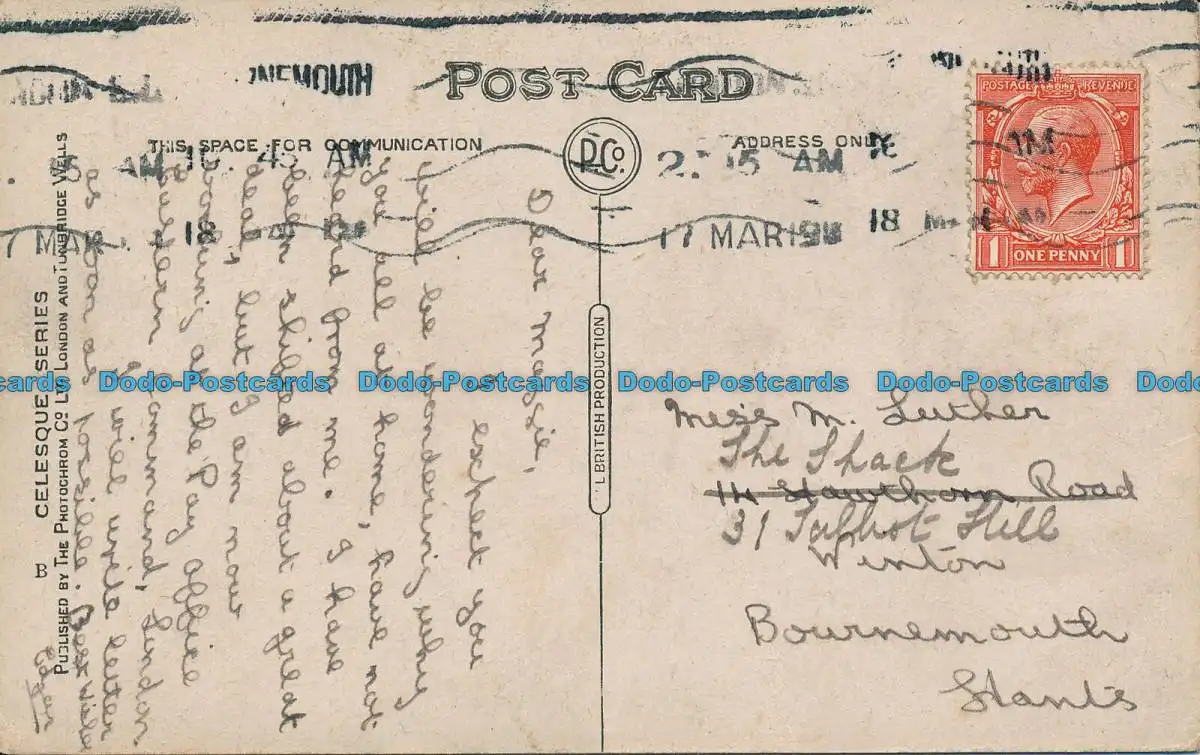 POST CARD
THIS SPACE FOR COMMUNICATION
ADDRESS ONLY
P.Co.
NEMOUTH
45 AM
10. 45 AM
2. 15 AM
17 MAR
18
17 MAR 19
18 MAR
POSTAGE REVENUE
1 ONE PENNY 1
Dear Massie,
I expect you
will be wondering why
you all at home, have not
heard from me. I have
been shifted about a great
deal, but I am now
working at the Pay Office
Eastern Command, London
I will write letter
as soon as possible. Best Wishes
Edgar
CELESQUE SERIES
PUBLISHED BY THE PHOTOCHROM CO. LTD. LONDON AND TUNBRIDGE WELLS
B
BRITISH PRODUCTION
Miss M. Luther
The Shack
14 Hawthorn Road
31 Talbot Hill
Winton
Bournemouth
Hants
Dodo-Postcards Dodo-Postcards Dodo-Postcards Dodo-Postcards